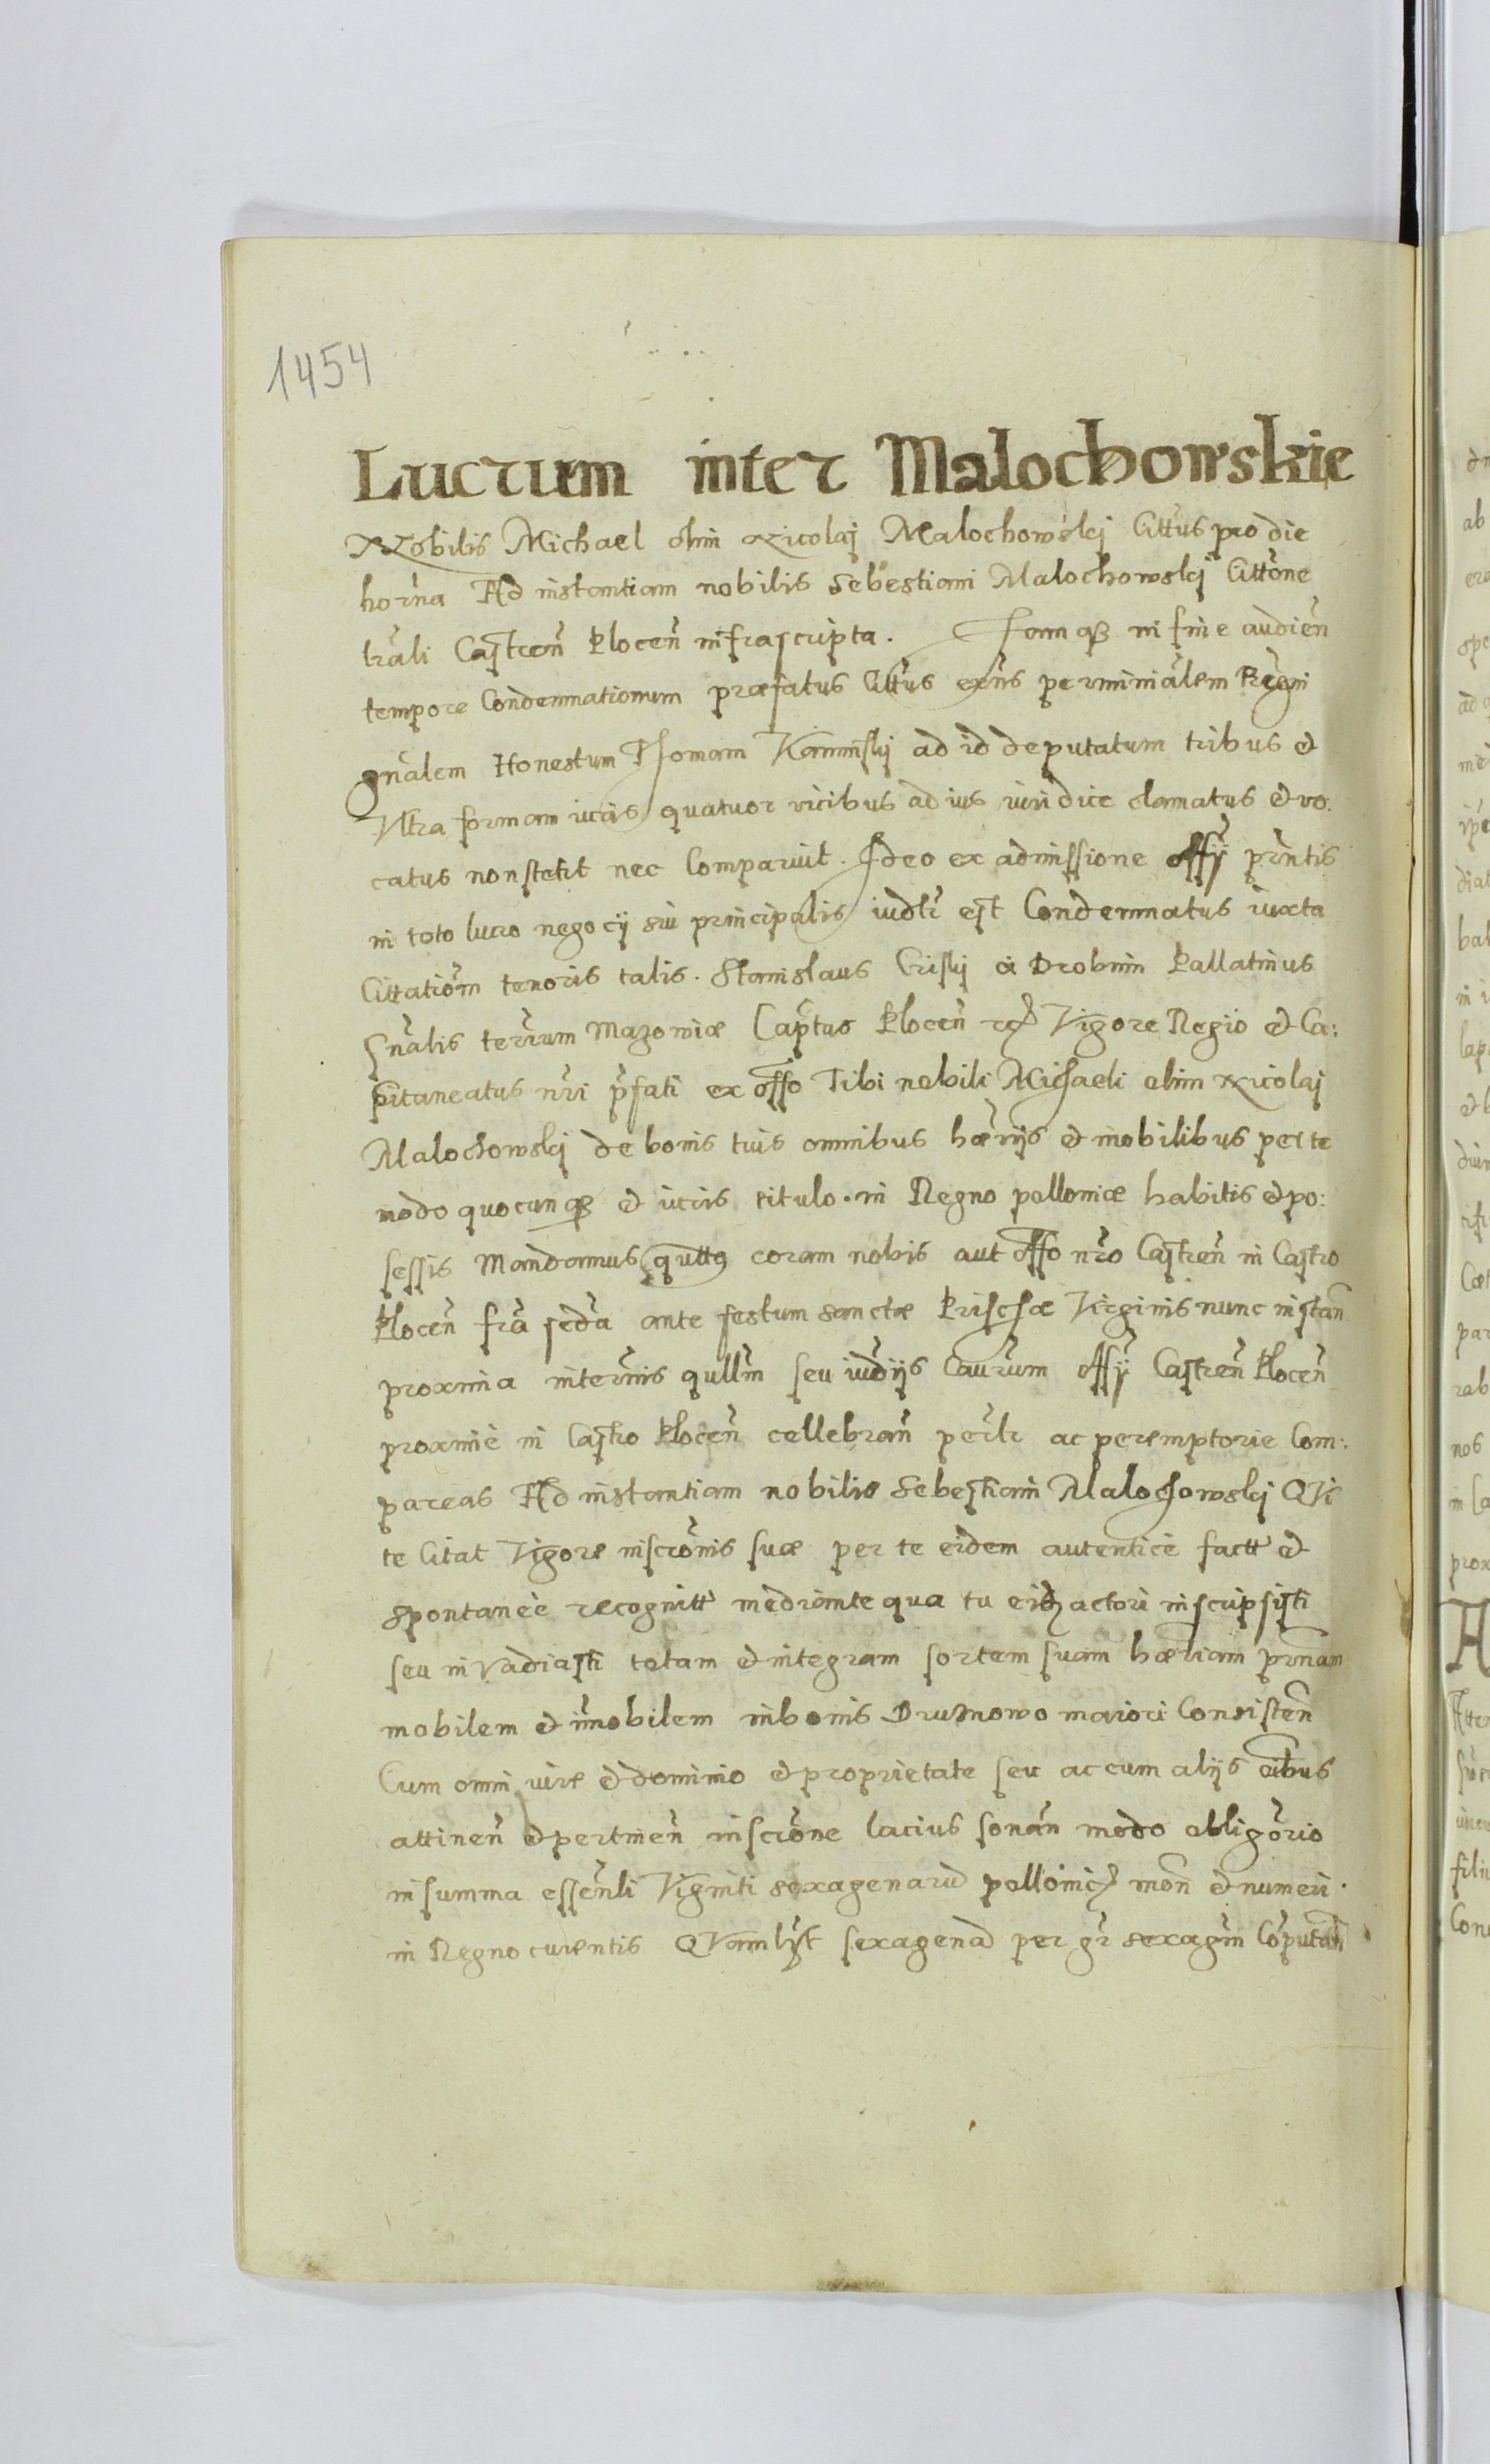 1454
Lucrum inter Malochowskie
Nobilis Michael olim Nicolaj Malochowskj Cittus pro die
horna Ad instantiam nobilis Sebestiani Malochowskj Cittone
lrali Castren Plocen infrascripta. Jamqȝ in fine audien
tempore Condemnationum præfatus Cittus exns per minialem Regni
gnalem Honestum Thomam Kaminskj ad id deputatum tribus et
Vltra formam iuris quatuor vicibus ad ius iuridice clamatus et vo:
catus non stetit nec Comparuit. Ideo ex admissione offÿ prntis
in toto lucro negocij sui principalis iudlr est Condemnatus iuxta
Cittationm tenoris talis. Stanislaus Criskj a Drobnin Pallatinus
Gnalis terrum Mazowiæ Captus Plocen rc Vigore Regio et Ca:
pitaneatus nri pfati ex offo Tibi nobili Michaeli olim Nicolaj
Malochowskj de bonis tuis omnibus hærijs et mobilibus per te
modo quocunqȝ et iuris titulo. in Regno polloniæ habitis et po:
sessis Mandamus quatts coram nobis aut offo nro Castren in Castro
Plocen fra scda ante festum sanctæ Prischæ Virginis nunc instan
proxima in termis qullm seu iudijs Caurum offÿ Castren Plocen
proximè in Castro Plocen cellebran perlr ac peremptorie Com:
pareas Ad instantiam nobilis Sebestiani Malochowskj QVi
te Citat Vigore inscronis suæ per te eidem autenticè factt et
spontaneè recognitt mediante qua tu eidȝ actori inscripsisti
seu invadiasti totam et integram sortem suam hæriam prnam
mobilem et imobilem in bonis Druznowo maiori Consisten
Cum omni iure et dominio et proprietate seu ac cum alijs oibus
attinen et pertinen inscrone lacius sonan modo obligorio
in summa essenli Viginti sexagenaru pollonic mon et numeri.
in Regno curentis QVamlzt sexagena per gr sexagin Coputan